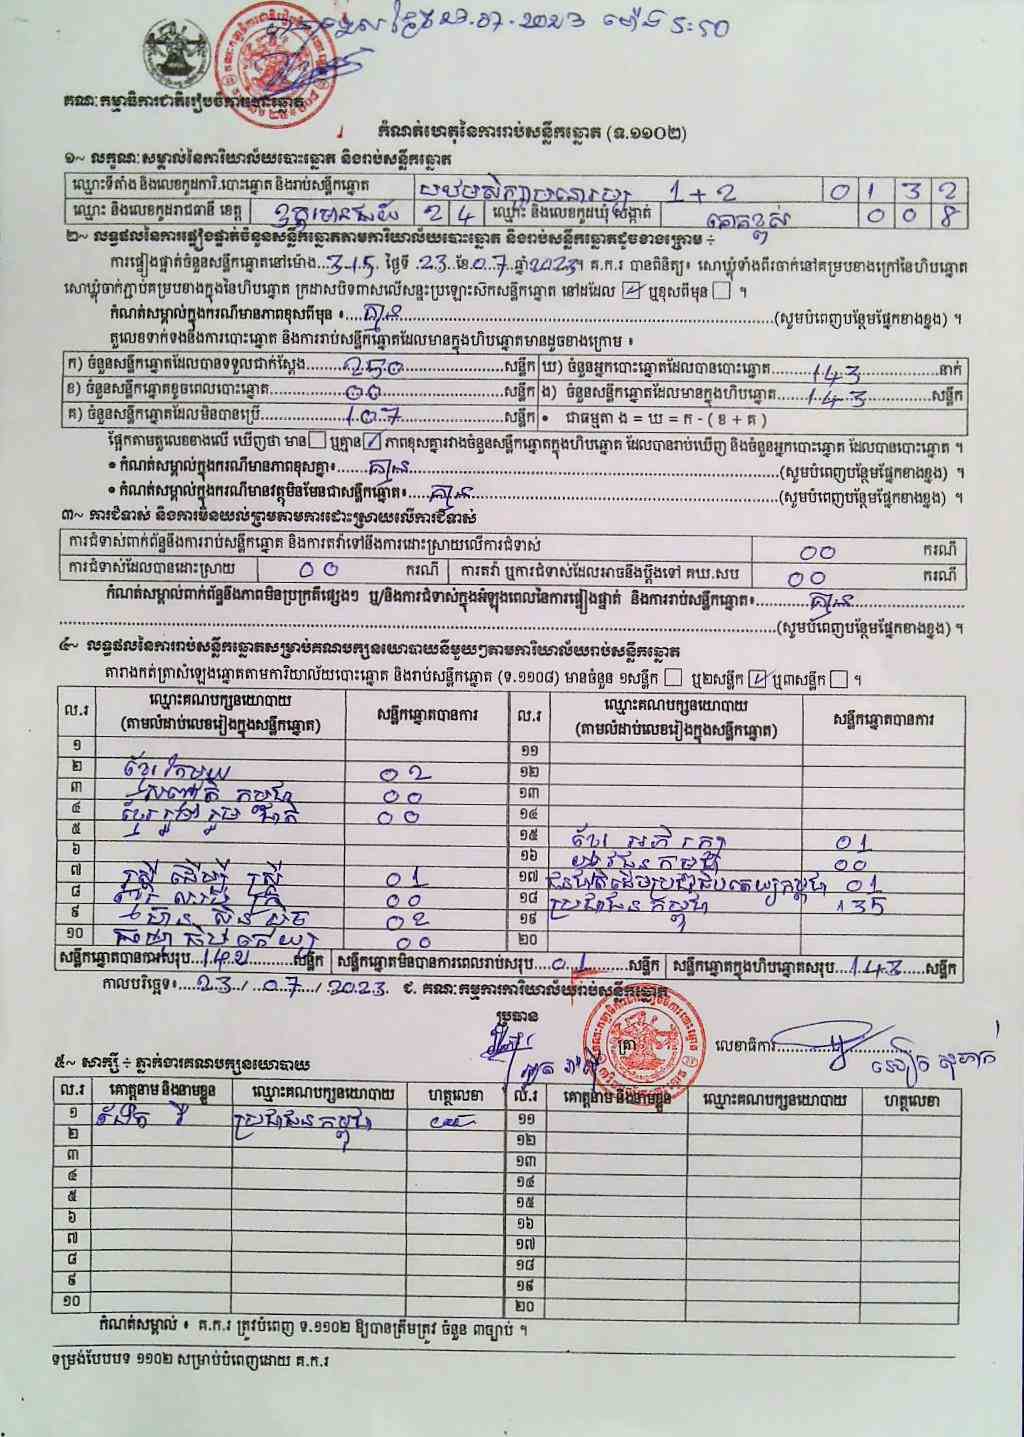 បានទទួល ថ្ងៃ 23.07.2023 ម៉ោង
គណៈកម្មាធិការជាតិរៀបចំការបោះឆ្នោត
កំណត់ហេតុនៃការរាប់សន្លឹកឆ្នោត (ទ.១១០២)
១~ លក្ខណៈសម្គាល់នៃការិយាល័យបោះឆ្នោត និងរាប់សន្លឹកឆ្នោត
ឈ្មោះទីតាំង និងលេខកូដការិ.បោះឆ្នោត និងរាប់សន្លឹកឆ្នោត បឋមសិក្សាមនោរម្យ 1+2 0 1 3 2
ឈ្មោះ និងលេខកូដរាជធានី ខេត្ត ឧត្តរមានជ័យ 2 4 ឈ្មោះ និងលេខកូដឃុំ សង្កាត់ គោកខ្ពស់ 0 0 8
២~ លទ្ធផលនៃការផ្ទៀងផ្ទាត់ចំនួនសន្លឹកឆ្នោតតាមការិយាល័យបោះឆ្នោត និងរាប់សន្លឹកឆ្នោតដូចខាងក្រោម ÷
ការផ្ទៀងផ្ទាត់ចំនួនសន្លឹកឆ្នោតនៅម៉ោង 3:15 ថ្ងៃទី 23 ខែ 07 ឆ្នាំ 2023។ គ.ក.រ បានពិនិត្យ៖ សោឃ្មុំទាំងពីរចាក់នៅគម្របខាងក្រៅនៃហិបឆ្នោត
សោឃ្មុំចាក់ភ្ជាប់គម្របខាងក្នុងនៃហិបឆ្នោត ក្រដាសបិទពាសលើសន្ទះប្រឡោះស៊កសន្លឹកឆ្នោត នៅដដែល ☑ ឬខុសពីមុន ☐ ។
កំណត់សម្គាល់ក្នុងករណីមានភាពខុសពីមុន ៖ គ្មាន (សូមបំពេញបន្ថែមផ្នែកខាងខ្នង) ។
តួលេខទាក់ទងនឹងការបោះឆ្នោត និងការរាប់សន្លឹកឆ្នោតដែលមានក្នុងហិបឆ្នោតមានដូចខាងក្រោម ៖
ក) ចំនួនសន្លឹកឆ្នោតដែលបានទទួលជាក់ស្តែង 250 សន្លឹក ឃ) ចំនួនអ្នកបោះឆ្នោតដែលបានបោះឆ្នោត 143 នាក់
ខ) ចំនួនសន្លឹកឆ្នោតខូចពេលបោះឆ្នោត 00 សន្លឹក ង) ចំនួនសន្លឹកឆ្នោតដែលមានក្នុងហិបឆ្នោត 143 សន្លឹក
គ) ចំនួនសន្លឹកឆ្នោតដែលមិនបានប្រើ 107 សន្លឹក • ជាធម្មតា ង = ឃ = ក - ( ខ + គ )
ផ្អែកតាមតួលេខខាងលើ ឃើញថា មាន ☐ ឬគ្មាន ☑ ភាពខុសគ្នារវាងចំនួនសន្លឹកឆ្នោតក្នុងហិបឆ្នោត ដែលបានរាប់ឃើញ និងចំនួនអ្នកបោះឆ្នោត ដែលបានបោះឆ្នោត ។
• កំណត់សម្គាល់ក្នុងករណីមានភាពខុសគ្នា៖ គ្មាន (សូមបំពេញបន្ថែមផ្នែកខាងខ្នង) ។
• កំណត់សម្គាល់ក្នុងករណីមានវត្ថុមិនមែនជាសន្លឹកឆ្នោត៖ គ្មាន (សូមបំពេញបន្ថែមផ្នែកខាងខ្នង) ។
៣~ ការជំទាស់ និងការមិនយល់ព្រមតាមការដោះស្រាយលើការជំទាស់
ការជំទាស់ពាក់ព័ន្ធនឹងការរាប់សន្លឹកឆ្នោត និងការតវ៉ាទៅនឹងការដោះស្រាយលើការជំទាស់ 00 ករណី
ការជំទាស់ដែលបានដោះស្រាយ 00 ករណី ការតវ៉ា ឬការជំទាស់ដែលអាចនឹងប្តឹងទៅ គឃ.សប 00 ករណី
កំណត់សម្គាល់ពាក់ព័ន្ធនឹងភាពមិនប្រក្រតីផ្សេងៗ ឬ/និងការជំទាស់ក្នុងអំឡុងពេលនៃការផ្ទៀងផ្ទាត់ និងការរាប់សន្លឹកឆ្នោត៖ គ្មាន
(សូមបំពេញបន្ថែមផ្នែកខាងខ្នង) ។
៤~ លទ្ធផលនៃការរាប់សន្លឹកឆ្នោតសម្រាប់គណបក្សនយោបាយនីមួយៗតាមការិយាល័យរាប់សន្លឹកឆ្នោត
តារាងកត់ត្រាសំឡេងឆ្នោតតាមការិយាល័យបោះឆ្នោត និងរាប់សន្លឹកឆ្នោត (ទ.១១០៨) មានចំនួន ១សន្លឹក ☐ ឬ២សន្លឹក ☑ ឬ៣សន្លឹក ☐ ។
ល.រ ឈ្មោះគណបក្សនយោបាយ (តាមលំដាប់លេខរៀងក្នុងសន្លឹកឆ្នោត) សន្លឹកឆ្នោតបានការ ល.រ ឈ្មោះគណបក្សនយោបាយ (តាមលំដាប់លេខរៀងក្នុងសន្លឹកឆ្នោត) សន្លឹកឆ្នោតបានការ
១ ១១
២ ខ្មែរតែមួយ 02 ១២
៣ សញ្ជាតិកម្ពុជា 00 ១៣
៤ ខ្មែររួបរួមជាតិ 00 ១៤
៥ ១៥ ខ្មែរអភិរក្ស 01
៦ ១៦ យុវជនកម្ពុជា 00
៧ ស្ត្រីដើម្បីស្ត្រី 01 ១៧ ជនជាតិដើមប្រជាធិបតេយ្យកម្ពុជា 01
៨ 00 ១៨ ប្រជាជនកម្ពុជា 135
៩ ហ្វ៊ុនស៊ិនប៉ិច 02 ១៩
១០ 00 ២០
សន្លឹកឆ្នោតបានការសរុប 142 សន្លឹក សន្លឹកឆ្នោតមិនបានការពេលរាប់សរុប 01 សន្លឹក សន្លឹកឆ្នោតក្នុងហិបឆ្នោតសរុប 143 សន្លឹក
កាលបរិច្ឆេទ៖ 23 / 07 / 2023 ៩. គណៈកម្មការការិយាល័យរាប់សន្លឹកឆ្នោត
ប្រធាន
ត្រា លេខាធិការ
៥~ សាក្សី ÷ ភ្នាក់ងារគណបក្សនយោបាយ
ល.រ គោត្តនាម និងនាមខ្លួន ឈ្មោះគណបក្សនយោបាយ ហត្ថលេខា ល.រ គោត្តនាម និងនាមខ្លួន ឈ្មោះគណបក្សនយោបាយ ហត្ថលេខា
១ ប្រជាជនកម្ពុជា ១១
២ ១២
៣ ១៣
៤ ១៤
៥ ១៥
៦ ១៦
៧ ១៧
៨ ១៨
៩ ១៩
១០ ២០
កំណត់សម្គាល់ ៖ គ.ក.រ ត្រូវបំពេញ ទ.១១០២ ឱ្យបានត្រឹមត្រូវ ចំនួន ៣ច្បាប់ ។
ទម្រង់បែបបទ ១១០២ សម្រាប់បំពេញដោយ គ.ក.រ